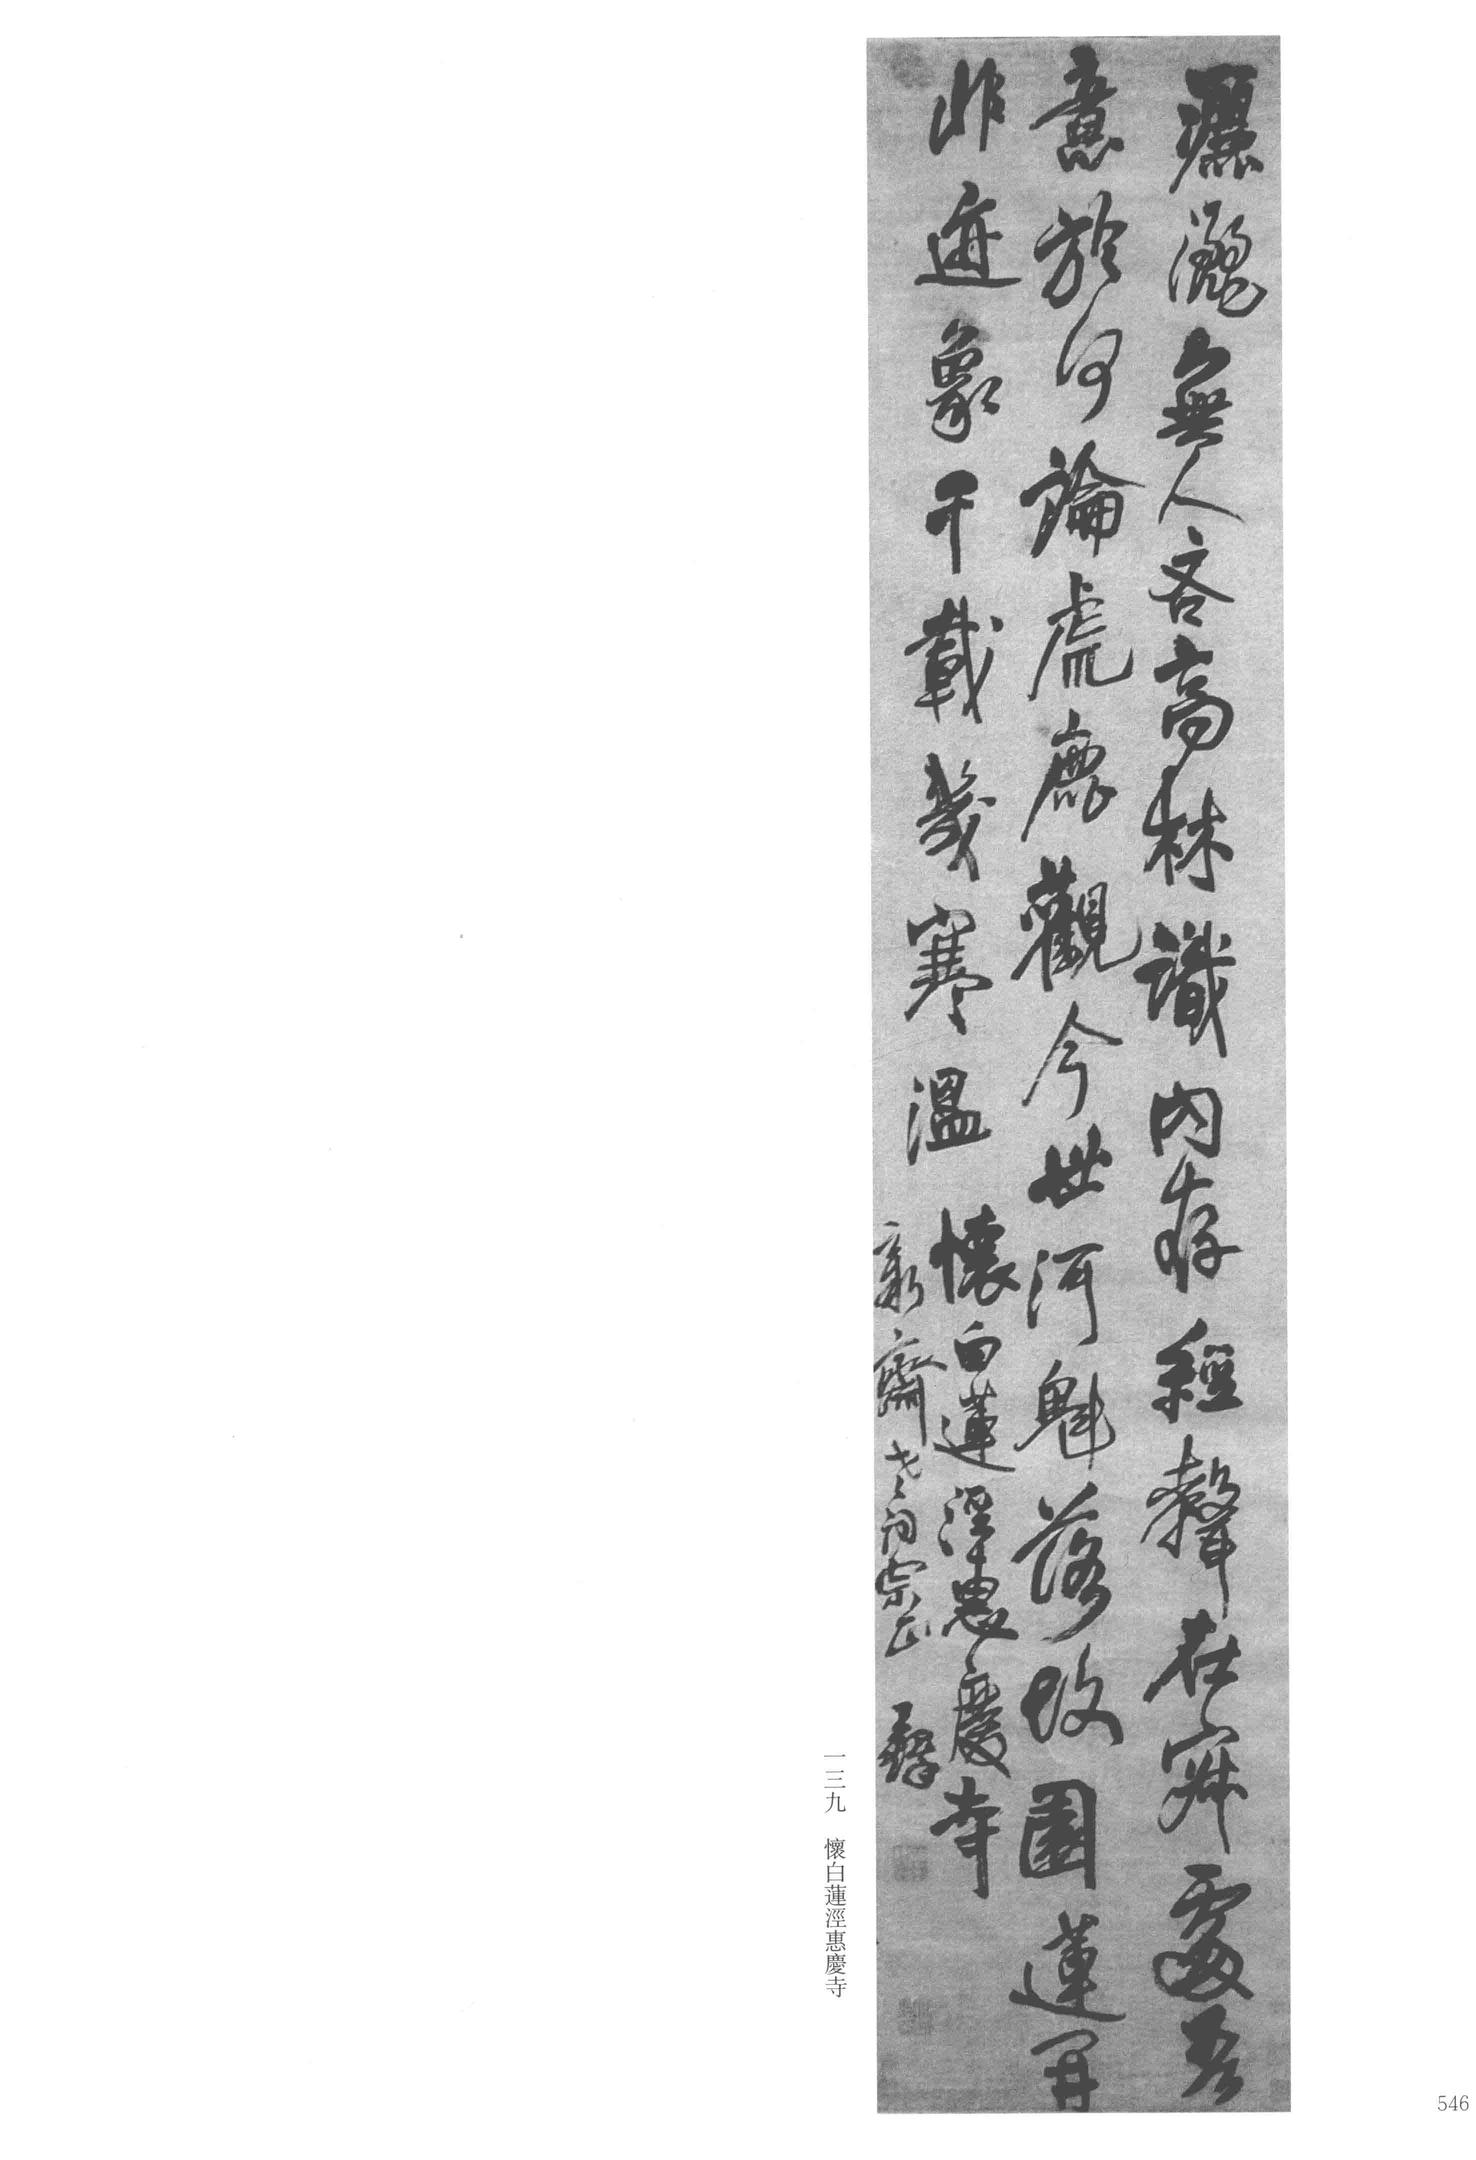 灑灑無人吝高林識內存經聲在寂處吾
意於何論虎鹿觀今世河魁落故園蓮開
非迹象千載幾寒溫
懷白蓮涇惠慶寺
齋 詞宗正 鐸
一三九 懷白蓮涇惠慶寺
546